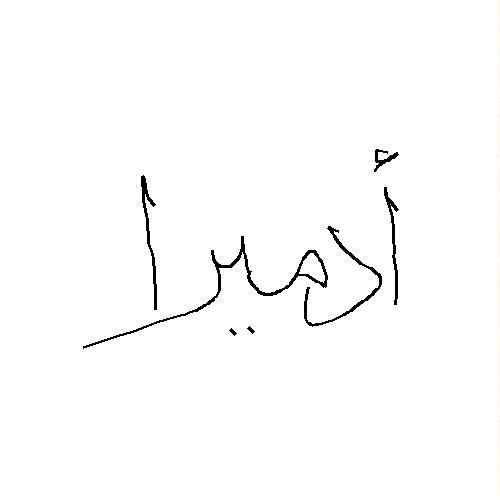 أدميرا